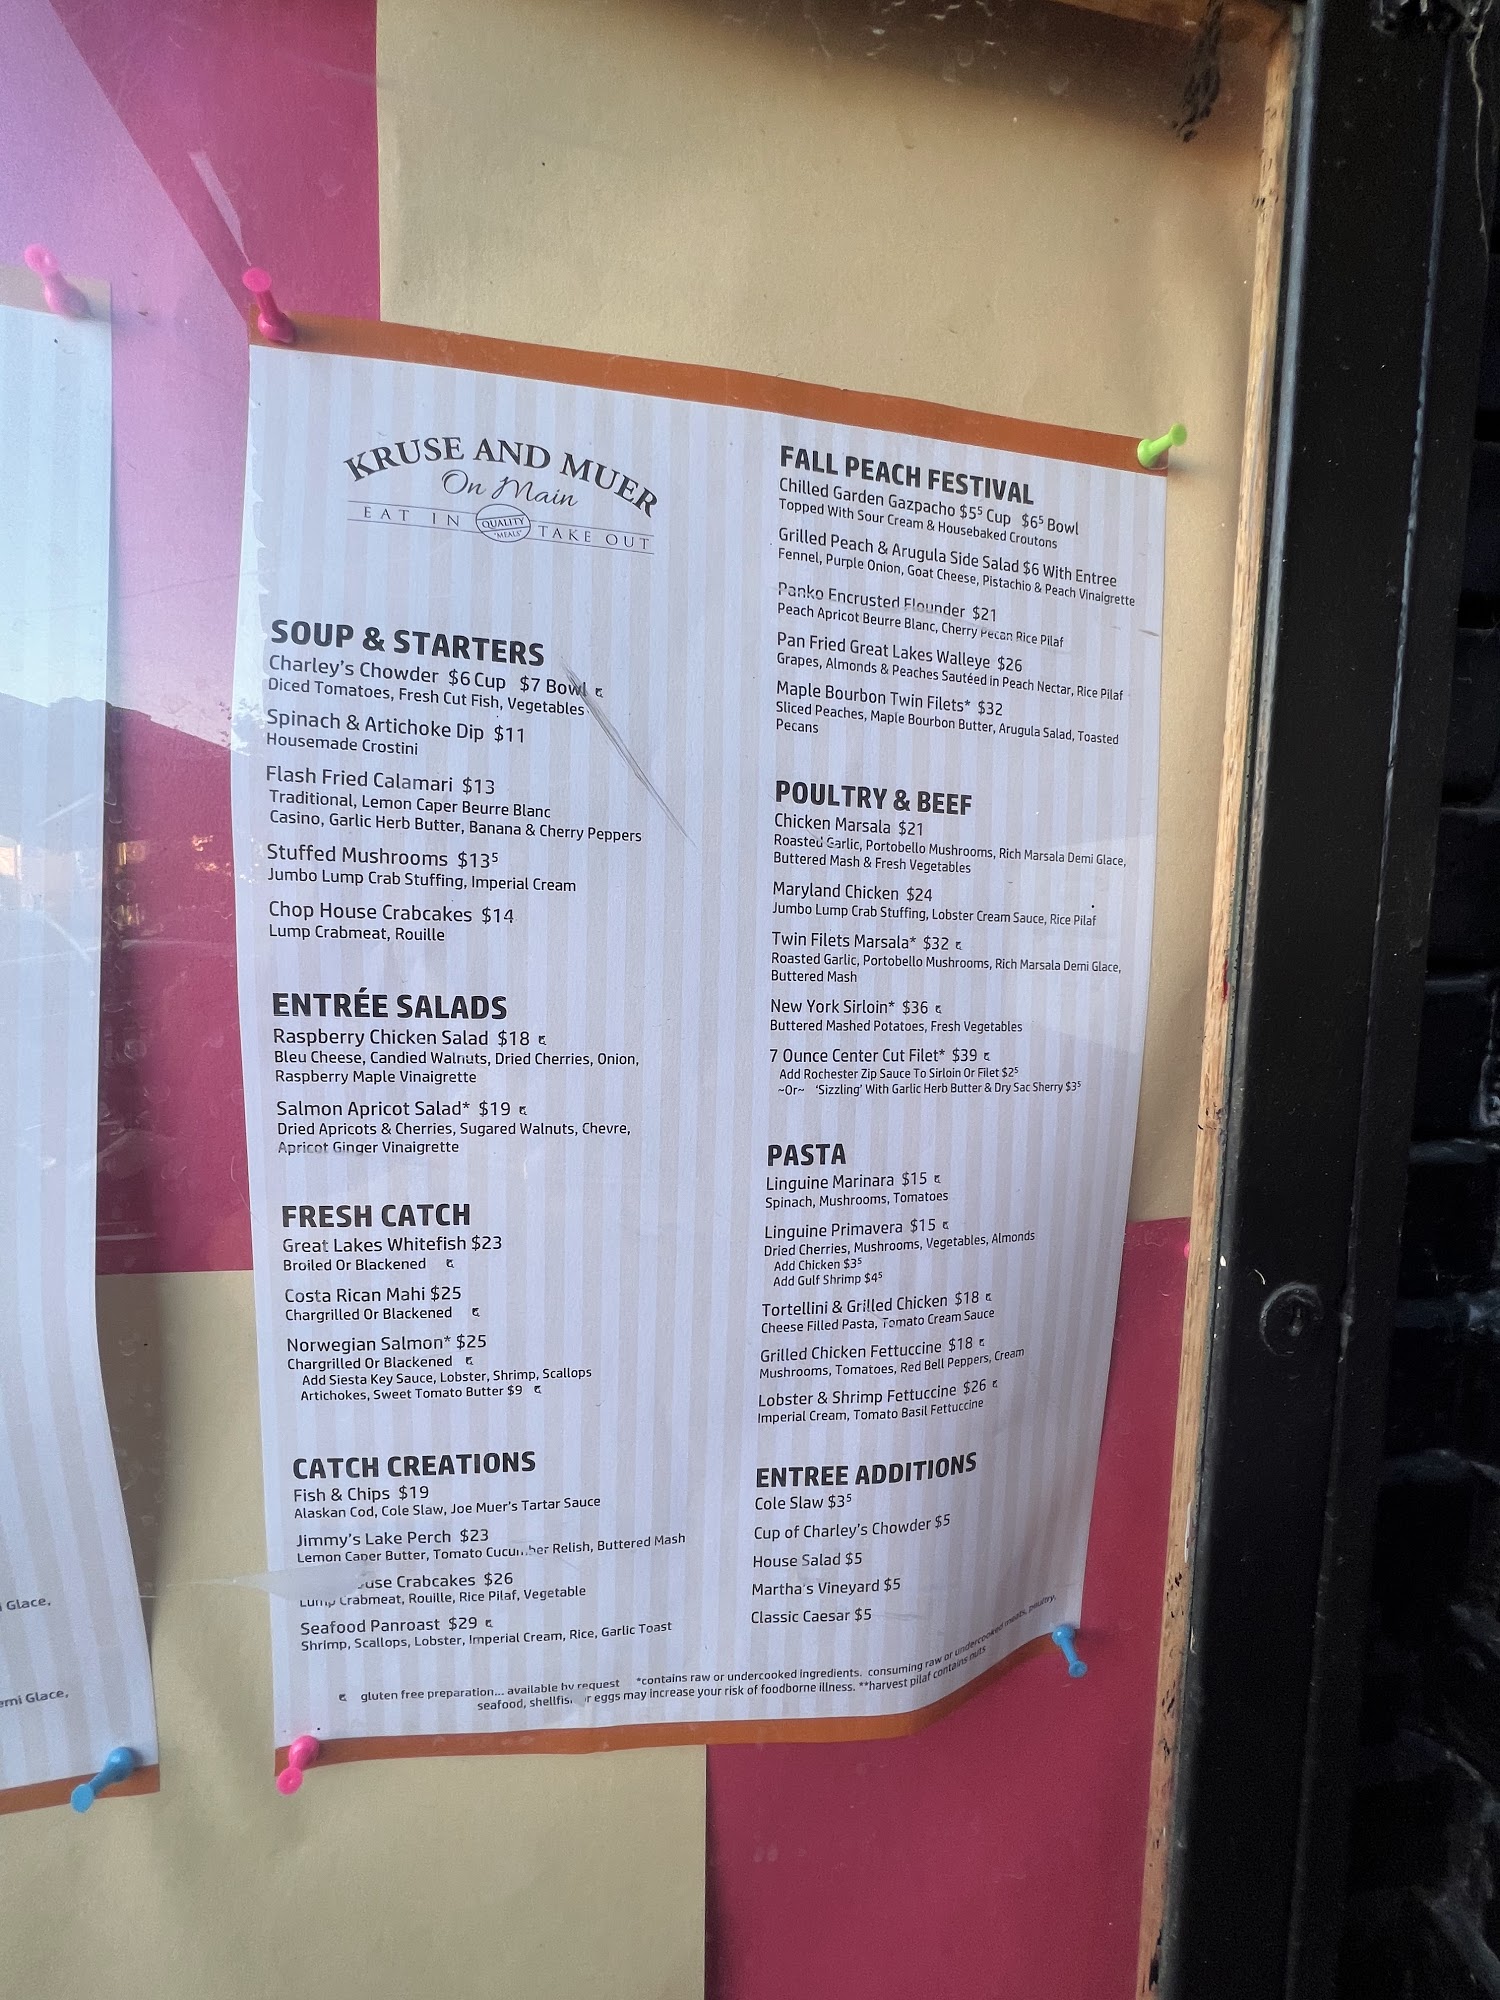 KRUSE AND MUER
On Main
EAT IN QUALITY "MEALS" TAKE OUT
SOUP & STARTERS
Charley's Chowder $6 Cup $7 Bowl
Diced Tomatoes, Fresh Cut Fish, Vegetables
Spinach & Artichoke Dip $11
Housemade Crostini
Flash Fried Calamari $13
Traditional, Lemon Caper Beurre Blanc
Casino, Garlic Herb Butter, Banana & Cherry Peppers
Stuffed Mushrooms $13⁵
Jumbo Lump Crab Stuffing, Imperial Cream
Chop House Crabcakes $14
Lump Crabmeat, Rouille
ENTRÉE SALADS
Raspberry Chicken Salad $18
Bleu Cheese, Candied Walnuts, Dried Cherries, Onion,
Raspberry Maple Vinaigrette
Salmon Apricot Salad* $19
Dried Apricots & Cherries, Sugared Walnuts, Chevre,
Apricot Ginger Vinaigrette
FRESH CATCH
Great Lakes Whitefish $23
Broiled Or Blackened
Costa Rican Mahi $25
Chargrilled Or Blackened
Norwegian Salmon* $25
Chargrilled Or Blackened
Add Siesta Key Sauce, Lobster, Shrimp, Scallops
Artichokes, Sweet Tomato Butter $9
CATCH CREATIONS
Fish & Chips $19
Alaskan Cod, Cole Slaw, Joe Muer's Tartar Sauce
Jimmy's Lake Perch $23
Lemon Caper Butter, Tomato Cucumber Relish, Buttered Mash
use Crabcakes $26
Lump Crabmeat, Rouille, Rice Pilaf, Vegetable
Seafood Panroast $29
Shrimp, Scallops, Lobster, Imperial Cream, Rice, Garlic Toast
FALL PEACH FESTIVAL
Chilled Garden Gazpacho $5⁵ Cup $6⁵ Bowl
Topped With Sour Cream & Housebaked Croutons
Grilled Peach & Arugula Side Salad $6 With Entree
Fennel, Purple Onion, Goat Cheese, Pistachio & Peach Vinaigrette
Panko Encrusted Flounder $21
Peach Apricot Beurre Blanc, Cherry Pecan Rice Pilaf
Pan Fried Great Lakes Walleye $26
Grapes, Almonds & Peaches Sautéed in Peach Nectar, Rice Pilaf
Maple Bourbon Twin Filets* $32
Sliced Peaches, Maple Bourbon Butter, Arugula Salad, Toasted
Pecans
POULTRY & BEEF
Chicken Marsala $21
Roasted Garlic, Portobello Mushrooms, Rich Marsala Demi Glace,
Buttered Mash & Fresh Vegetables
Maryland Chicken $24
Jumbo Lump Crab Stuffing, Lobster Cream Sauce, Rice Pilaf
Twin Filets Marsala* $32
Roasted Garlic, Portobello Mushrooms, Rich Marsala Demi Glace,
Buttered Mash
New York Sirloin* $36
Buttered Mashed Potatoes, Fresh Vegetables
7 Ounce Center Cut Filet* $39
Add Rochester Zip Sauce To Sirloin Or Filet $2⁵
~Or~ 'Sizzling' With Garlic Herb Butter & Dry Sac Sherry $3⁵
PASTA
Linguine Marinara $15
Spinach, Mushrooms, Tomatoes
Linguine Primavera $15
Dried Cherries, Mushrooms, Vegetables, Almonds
Add Chicken $3⁵
Add Gulf Shrimp $4⁵
Tortellini & Grilled Chicken $18
Cheese Filled Pasta, Tomato Cream Sauce
Grilled Chicken Fettuccine $18
Mushrooms, Tomatoes, Red Bell Peppers, Cream
Lobster & Shrimp Fettuccine $26
Imperial Cream, Tomato Basil Fettuccine
ENTREE ADDITIONS
Cole Slaw $3⁵
Cup of Charley's Chowder $5
House Salad $5
Martha's Vineyard $5
Classic Caesar $5
gluten free preparation... available by request *contains raw or undercooked ingredients. consuming raw or undercooked meats, poultry,
seafood, shellfish or eggs may increase your risk of foodborne illness. **harvest pilaf contains nuts
Glace,
emi Glace,